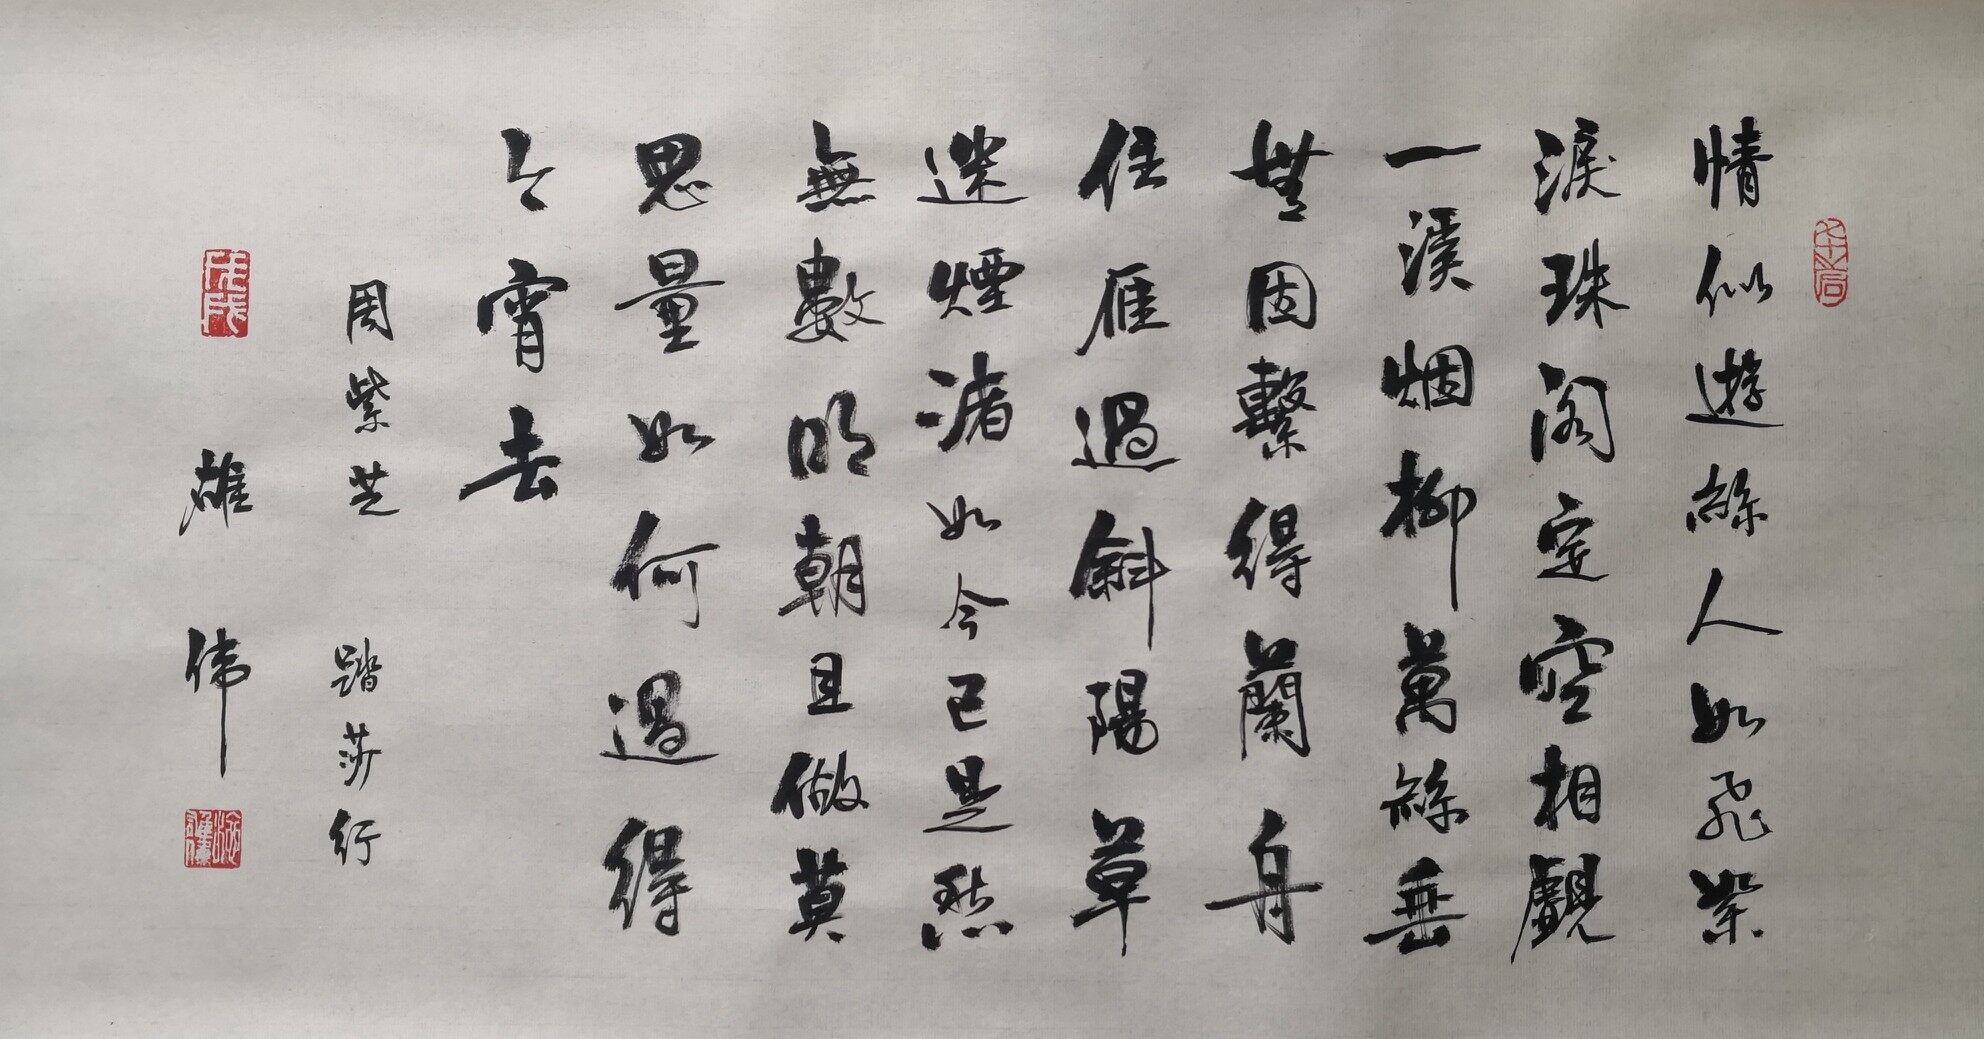 情似遊絲人如飛絮
淚珠阁定空相覷
一溪烟柳萬絲垂
無因繫得蘭舟
住雁過斜陽草
迷煙渚如今已是愁
無數明朝且做莫
思量如何過得
今宵去
周紫芝 踏莎行
戊戌 雄伟